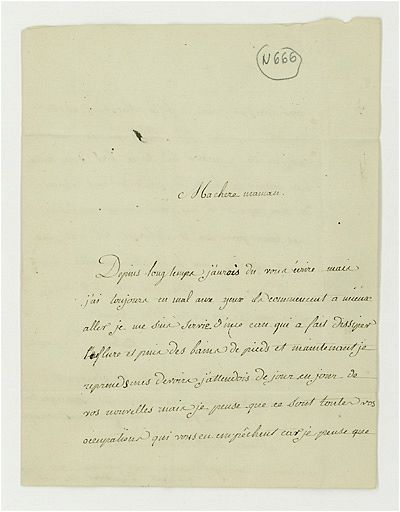 N666
Ma chere maman.
Depuis long temps j'aurois du vous écrire mais
j'ai toujours eu mal aux yeux ils commencent a mieux
aller je me suis servie d'une eau qui a fait dissiper
l'enflure et puis des bains de pieds et maintenant je
reprends mes devoirs j'attendois de jour en jour de
vos nouvelles mais je pense que ce sont toute vos
occupations qui vous en empêchent car je pense que